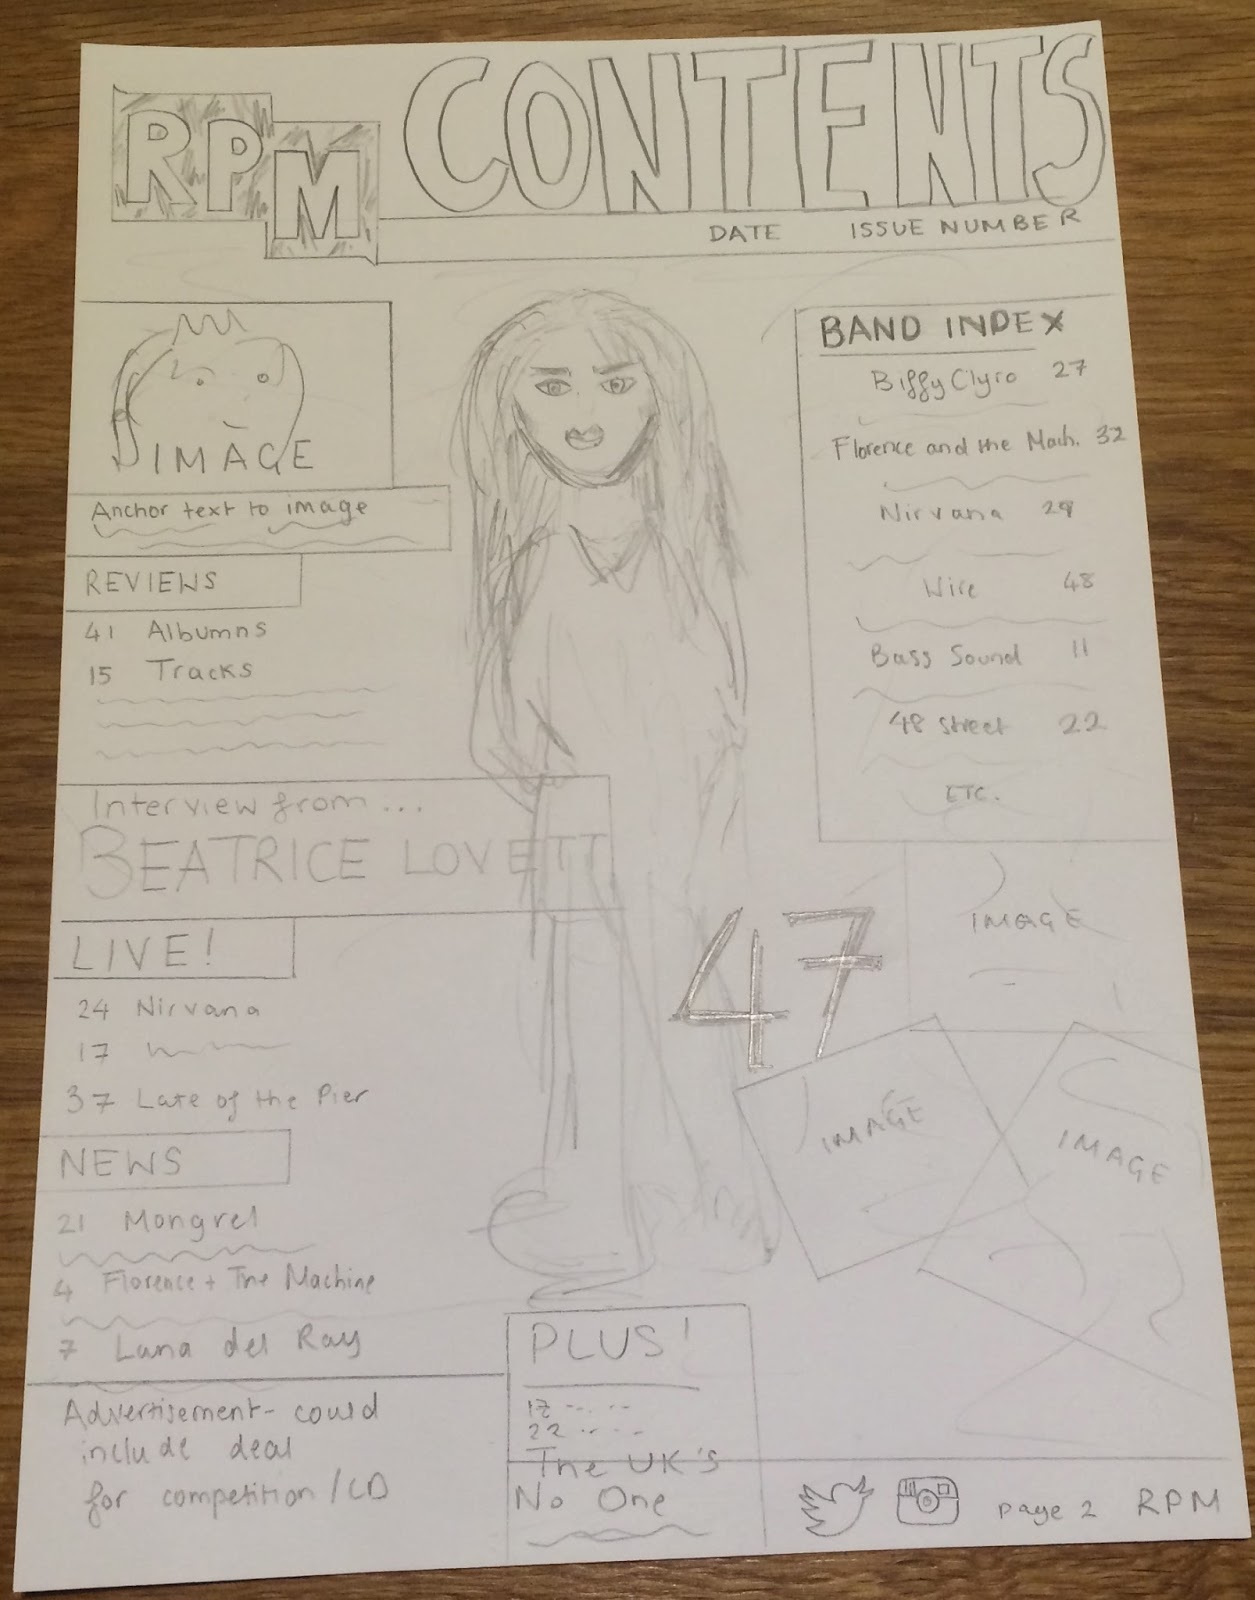 RPM
CONTENTS
DATE ISSUE NUMBER
IMAGE
Anchor text to image
REVIEWS
41 Albumns
15 Tracks
Interview from...
BEATRICE LOVETT
LIVE!
24 Nirvana
17
37 Late of the Pier
NEWS
21 Mongrel
4 Florence + The Machine
7 Lana del Ray
Advertisement - could
include deal
for competition / CD
BAND INDEX
Biffy Clyro 27
Florence and the Mach. 32
Nirvana 29
Wire 48
Bass Sound 11
48 Street 22
ETC.
47
IMAGE
IMAGE
IMAGE
PLUS!
17
22
The UK's
No One
page 2 RPM